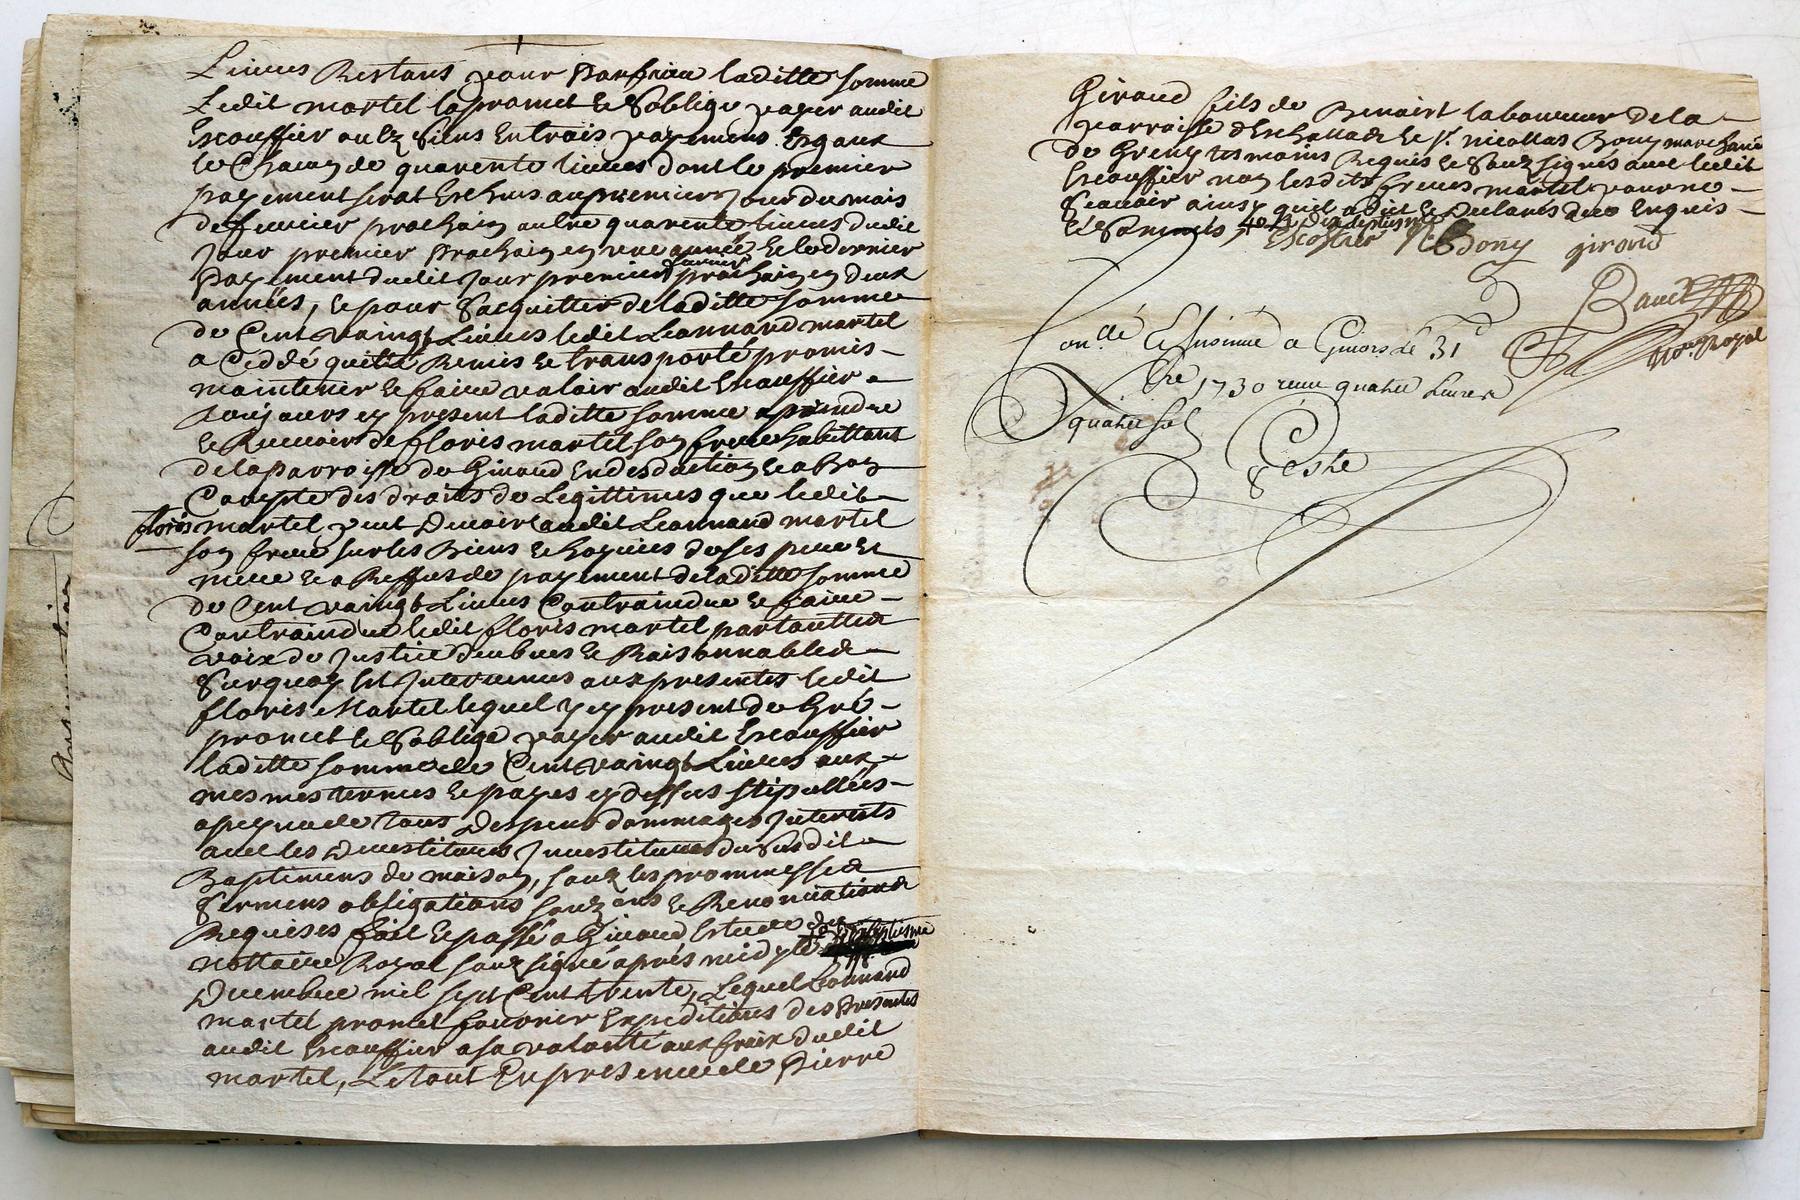 Liures Restans pour Parfaire laditte somme
Ledit martel la promet et Soblige payer audit
Escouffier ou ez Siens En trois payemens Esgaux
le Chacun de quarente liures dont le premier
payement serat Escheus au premier Jour du mois
de feurier prochain autre quarente liures dudit
Jour premier prochain en une année Et le dernier
Payement dudit Jour premier feurier prochain en deux
années, Et pour Sacquitter de laditte Somme
de Cent vaingt Liures ledit Leonnard martel
a Ceddé quitté Remis et transporté promis
maintenir Et faire valoir audit Escouffier a
toujours ey present laditte somme a prandre
Et Receuoir de floris martel son frere habittant
de la parroisse de Giuaud En desduction Et a Bon
Compte des droits de Legittimes que ledit
floris martel peut deuoir audit Leonnard martel
son frere sur les Biens Et hoyries de ses pere Et
mere Et a Reffus de payement de laditte somme
de Cent vaingt Liures Contraindre Et faire
Contraindre ledit floris martel par toutte
voix de Justice deubues Et Raisonnable
Surquoy Est Interuenus aux presentes ledit
floris Martel lequel y ey present de Gré
promet Et Soblige payer audit Escouffier
laditte somme de Cent vaingt Liures aux
mesmes termes Et payes ey dessus stipullées
a peyne de tous Despens dommages Interests
auec les Deuestitures Inuestitures du Susdit
Baptimens de maison, souz les prommesses
sermens obligations souz ons Et Renontiations
Requises fait Et passé a Giuaud Estude du
nottaire Royal souz signé aprés midy le dix septiesme
Decembre mil sept Cent trente, Lequel Leonnard
martel promet fournir Expeditions des Presentes
audit Escouffier a sa volonté aux fraix dudit
martel, Le tout En presence de Pierre
Giraud fils de Benoist laboureur de la
parroisse d'Eschallas Et Sr. nicollas Bony marchand
de Greny tesmoins Requis Et Souz signés auec ledit
Escouffier non lesdits freres martel pour ne
Scauoir ainsy quil a dit Et Declarés de ce Enquis
Et Sommés
Escoffier N Bony giroud
Bauet
Nore Royal
Conllé Et Insinué a Giuors Lé 31
Xbre 1730 receu quatre Liures
quatre sol
Teste